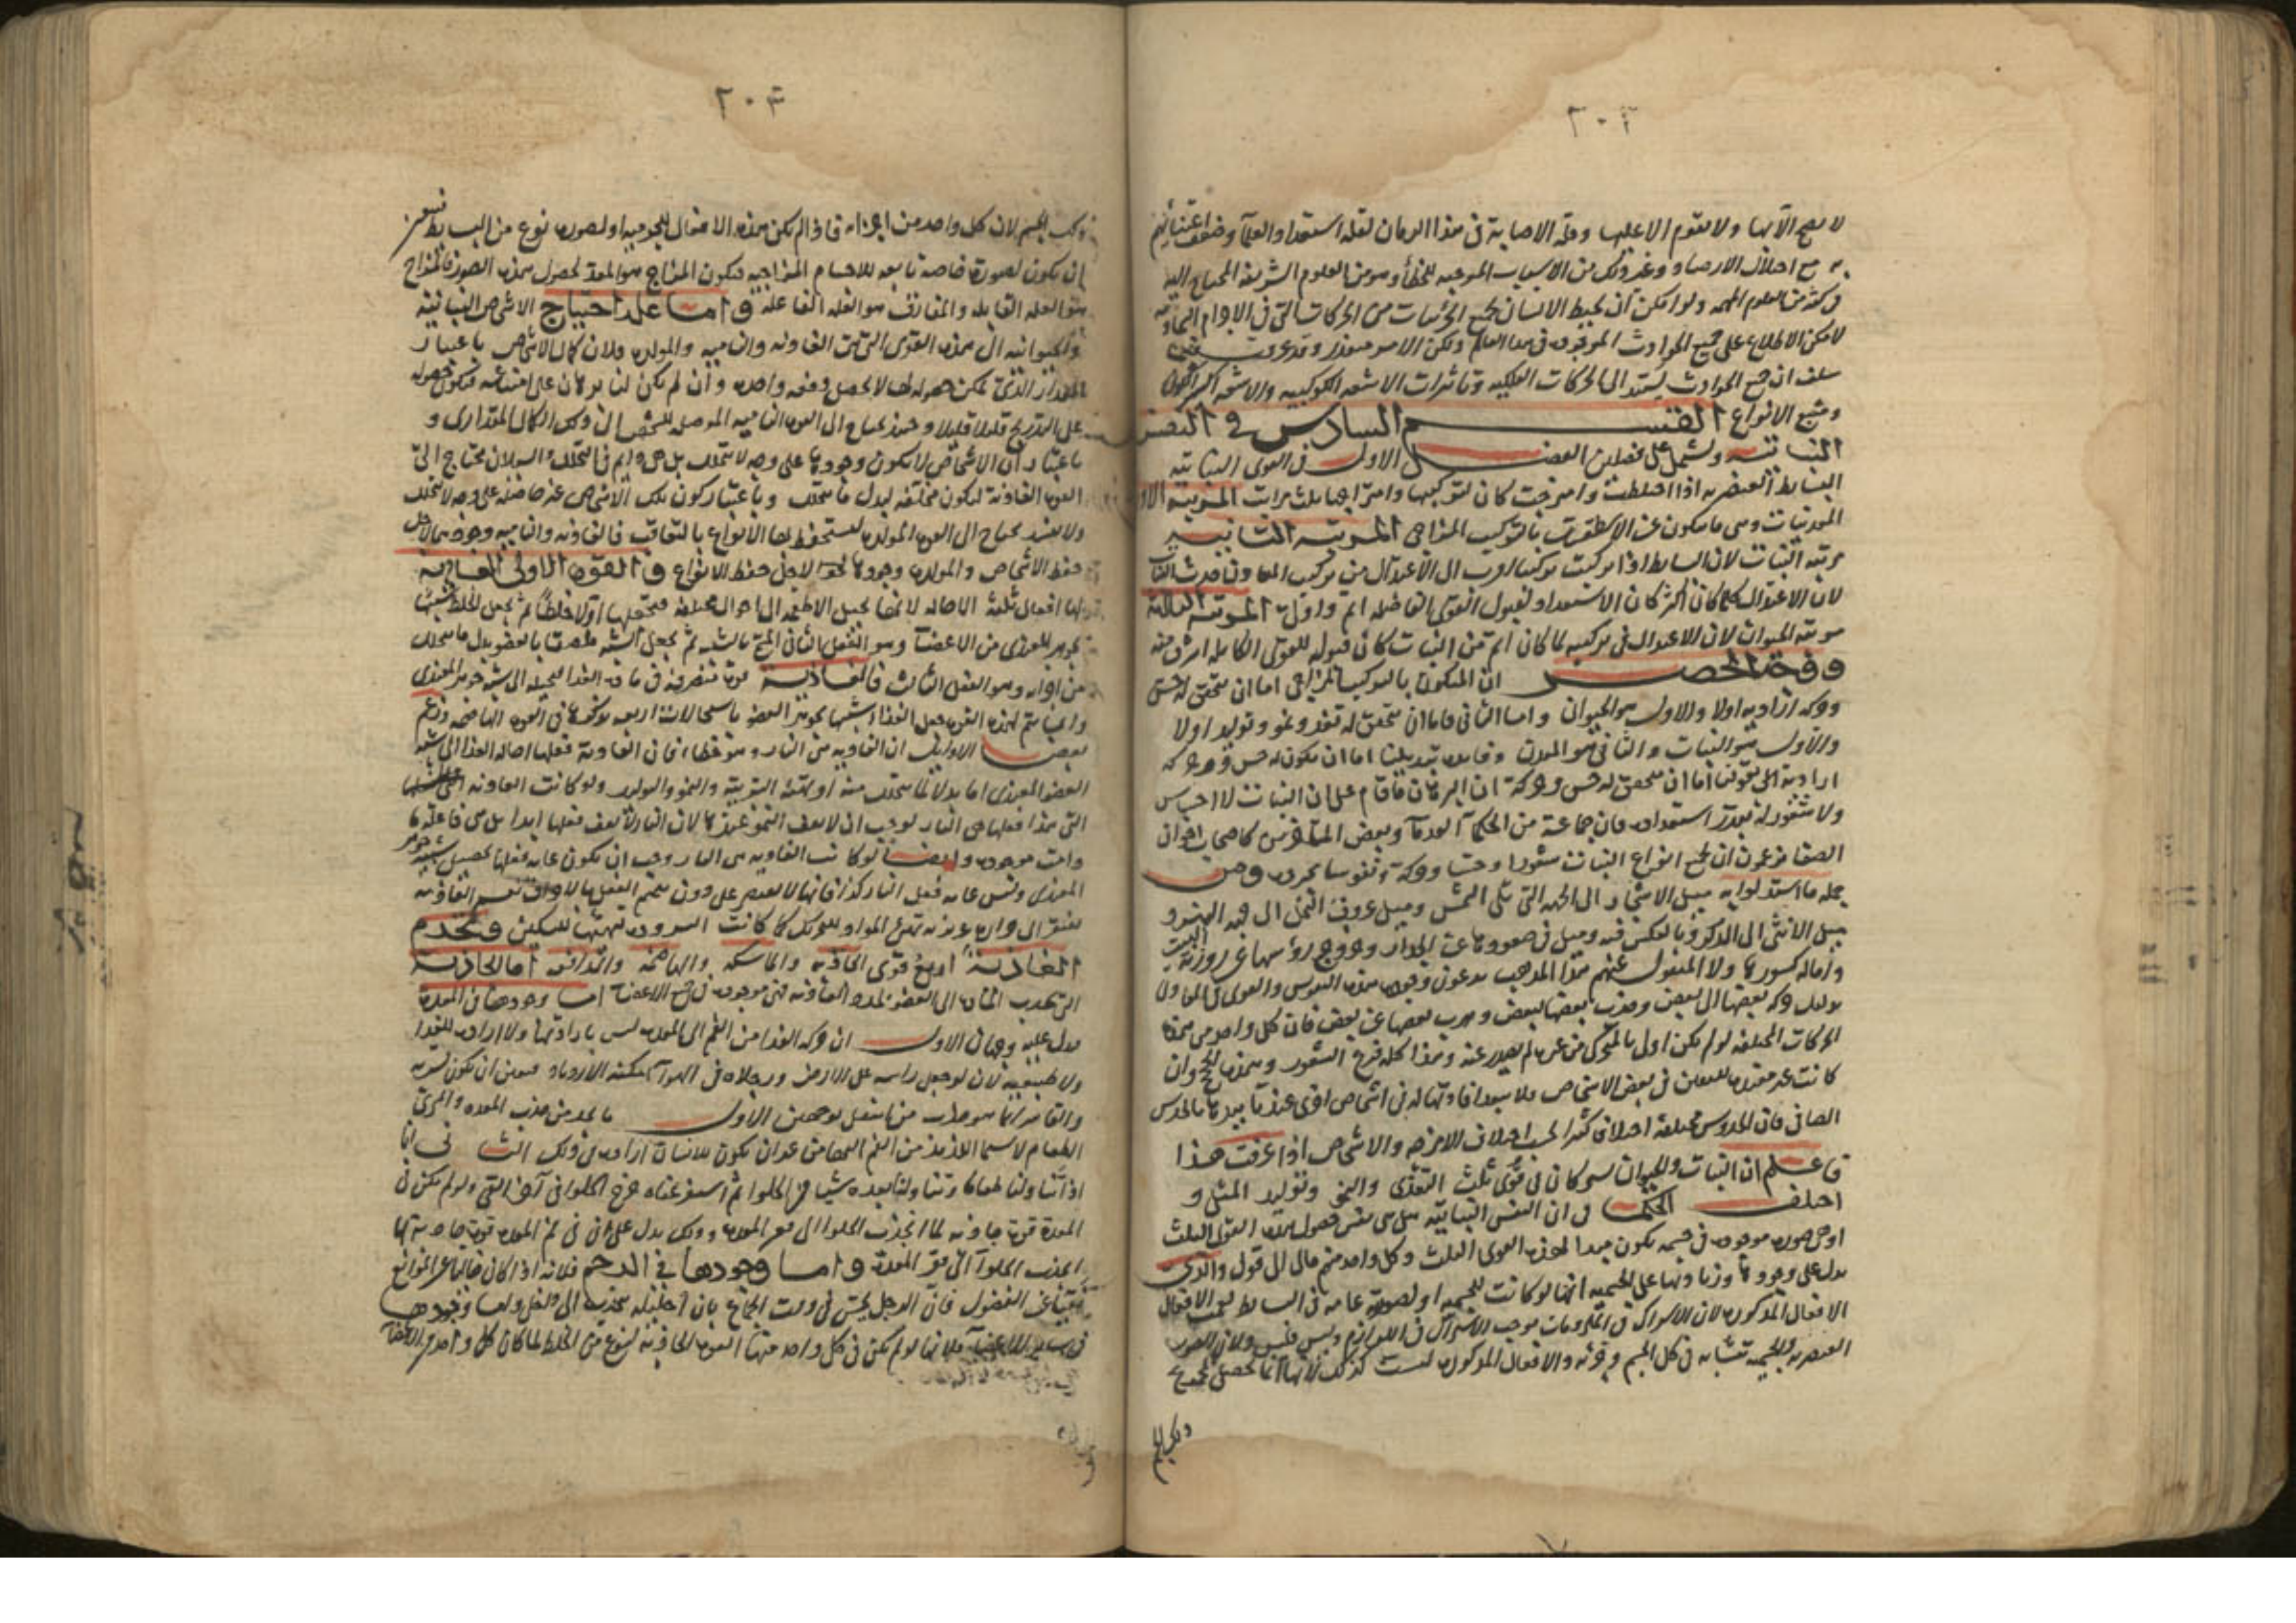 ٢٠٢
لا يصح الا بها ولا يقوم الا عليها وقلة الاصابة فى هذا الزمان لقلة استعداد العلمآ وضعف اعتنائهم
به مع اختلال الارصاد وغير ذلك من الاسباب الموجبه للخطأ وهو من العلوم الشريفة المحتاج اليه
فى كثير من العلوم المهمه ولو امكن ان يحيط الانسان بجميع الجزئيات من الحركات التى فى الاجرام السماويه
لامكن الاطلاع على جميع الحوادث الموجوده فى هذا العالم ولكن الامر متعذر وقد عرفت فيما
سلف ان جميع الحوادث يستند الى الحركات الفلكيه وتاثيرات الاشعه الكوكبيه والاشعه اكثر
وجميع الانواع القسم السادس فى النفس
النباتيه ويشتمل على فصلين الفصل الاول فى القوى النباتيه
البسايط العنصريه اذا اختلطت وامتزجت كان لتركيبها وامتزاجها ثلث مراتب المرتبة الاولى
المعدنيات وهى ما يتكون عن الاسطقسات بالتركيب المزاجى المرتبه الثانيه
مرتبه النبات لان البسايط اذا تركبت تركيبا اقرب الى الاعتدال من تركيب المعادن حدث النبات
لان الاعتدال كلما كان اكثر كان الاستعداد لقبول القوى الفاضله اتم واوفر المرتبه الثالثة
مرتبه الحيوان لان الاعتدال فى تركيبه لما كان اتم من النبات كان قبوله للقوى الكامله اشرف منه
ووجه الحصر ان المتكون بالتركيب المزاجى اما ان يتحقق له حس
وحركه اراديه اولا والاول هو الحيوان واما الثانى فاما ان يتحقق له تغذ ونمو وتوليد اولا
والاول هو النبات والثانى هو المعدن وفايده تبديلنا اما ان يكون له حس وحركه
اراديه الى قولنا اما ان يتحقق له حس وحركة ان البرهان ما قام على ان النبات لا احساس
ولا شعور له بقدر استعداده فان جماعة من الحكمآ القدمآ وبعض المتاخرين كاصحاب اخوان
الصفا يزعمون ان لجميع انواع النبات شعورا وحسا وحركة ونفوسا مجرده ومن
جمله ما استدلوا به ميل الاشجار الى الجهه التى تلى الشمس وميل عروق النخل الى جهه النهر و
ميل الانثى الى الذكر وبالعكس فيه وميل فى صعودها عن الجدار وخروج رؤسها عن روزنة البيت
بدليل حركه بعضها الى بعض وجذب بعضها لبعض وهرب بعضها عن بعض فان كل واحد من هذه
الحركات المختلفه لو لم يكن اولى بالمتحرك من غيره لم يصدر عنه وهذا كله فرع الشعور وهذه الحجج وان
كانت غير مفيده لليقين فى بعض الاشخاص فلا يبعد افادتها له فى اشخاص اخرى عند تاييدها بالحدس
الصافى فان الحدوس مختلفة اختلافا كثيرا بحسب اختلاف الامزجه والاشخاص اذا عرفت هذا
فاعلم ان النبات والحيوان يشتركان فى قوى ثلث التغذى والنمو وتوليد المثل و
اختلف الحكما فى ان النفس النباتيه هل هى نفس حصول هذه القوى الثلث
او هى صوره موجوده فى جسمه يكون مبدا لهذه القوى الثلث وكل واحد منهم مال الى قول والذى
يدل على وجودها وزيادتها على الجسميه انها لو كانت للجسميه او لصورة عامه فى البسايط لعمت الافعال
الافعال المذكوره لان الاشتراك فى الملزومات يوجب الاشتراك فى اللوازم وليس فليس ولان الصور
العنصريه والجسميه تتشابه فى كل الجسم وجزئه والافعال المذكوره ليست كذلك لانها انما تحصل لمجموع
ذلك الجسم
٢٠٣
ذلك الجسم لان كل واحد من اجزائه فاذا لم يكن هذه الافعال للجرميه او لصوره نوع من البسايط فتعين
ان يكون لصورة خاصة تابعه للاجسام المزاجيه فيكون المزاج هو المعد لحصول هذه الصور فالمزاج
هو العله القابله والمفارق هو العله الفاعله واما علة احتياج الاشخاص النباتيه
والحيوانيه الى هذه القوى التى هى الغاذيه والناميه والمولده فلان كمال الاشخاص باعتبار
المقدار الذى يمكن حصوله لها لا يحصل دفعه واحده وان لم يكن لنا برهان على امتناعه فيكون حصوله
على التدريج قليلا قليلا وحينئذ يحتاج الى القوه الناميه الموصله للشخص الى ذلك الكمال المقدارى و
باعتبار ان الاشخاص لا يكون وجودها على وجه لا يتحلل بل هى دايم فى التحلل والسيلان يحتاج الى
القوه الغاذية ليكون مخلفه لبدل ما يتحلل وباعتبار كون تلك الاشخاص غير حاصله على وجه لا يتحلل
ولا يفسد يحتاج الى القوه المولده ليستحفظ بها الانواع بالتعاقب فالغاذيه والناميه وجودهما لاجل
حفظ الاشخاص والمولده وجودها لاجل حفظ الانواع والقوة الاولى الغاذية
لها افعال ثلثة الاحاله لانها تحيل الاغذيه الى احوال مختلفه فتجعلها اولا خلطا ثم تجعل الخلط شبيها
بجوهر المغتذى من الاعضآ وهو الفعل الثانى ثم يجعل الشبه ملصقا بالعضو بدل ما يتحلل
من اجزائه وهو الفعل الثالث فالغاذية قوة متصرفة فى مادة الغذا لتحيله الى شبه جوهر المغتذى
وانما يتم لهذه القوه جعل الغذا شبيها بجوهر العضو باستحالات اربعه نذكرها فى القوه الهاضمه وزعم
بعض الاوايل ان الغاذيه هى النار وهو خطا فان الغاذية فعلها احاله الغذا الى شبه
العضو المغتذى اما بدلا لما يتحلل منه او لتهيئة التربية والنمو والتوليد ولو كانت الغاذيه
التى هذا فعلها هى النار لوجب ان لا يقف النمو عند حد لان النار لا يقف فعلها ابدا بل هى فاعله ما
دامت موجوده وايضا لو كانت الغاذيه هى النار وجب ان يكون غايه فعلها تحصيل شبيه جوهر
المغتذى وليس غايه فعل النار كذا فانها لا تقتصر على دون تتميم الفعل بالاحراق نعم الغاذيه
تفتقر الى حراره غريزيه تهيئ المواد للتحريك كما كانت البروده تهيئها للتسكين وتخدم
الغاذية اربع قوى الجاذبه والماسكه والهاضمه والدافعه اما الجاذبة
التى تجذب المادة الى العضو لمدد الغاذيه فهى موجوده فى جميع الاعضآ اما وجودها فى المعدة
يدل عليه وجهان الاول ان حركه الغذا من الفم الى المعده ليس بارادتها ولا اراده للغذا
ولا طبيعيه لان لو جعل راسه على الارض ورجلاه فى الهوآ امكنه الازدراد فتعين ان تكون قسريه
والقاسر انما هو جذب من اسفل لوجهين الاول ما نجد من جذب المعده والمرى
الطعام لاسيما اللذيذ من الفم اليها من غير ان يكون للانسان اراده فى ذلك الثانى انا
اذا تناولنا طعاما وتناولنا بعده شيا من الحلوا ثم استفرغناه خرج الحلوا فى آخر القى ولو لم يكن فى
المعدة قوة جاذبه لما انجذب الحلوا الى قعر المعده وذلك يدل على ان فى فم المعده قوة جاذبه لها
انجذب الحلوآ الى قعر المعدة واما وجودها فى الرحم فلانه اذا كان خاليا عن الموانع
نقيا عن الفضول فان الرجل يحس فى وقت الجماع بان احليله تنجذب الى داخل واما وجودها
فى ساير الاعضآ فلانها لو لم يكن فى كل واحد منها القوه الجاذبه لنوع من الخلط لما كان كل واحد من الاعضآ